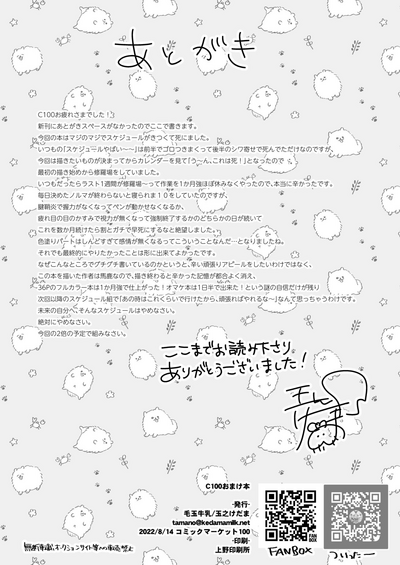 あとがき
C100お疲れさまでした！
新刊にあとがきスペースがなかったのでここで書きます。
今回の本はマジのマジでスケジュールがきつくて死にました。
いつもの「スケジュールやばい…」は前半でゴロつきまくって後半のシワ寄せで死んでただけなのですが、
今回は描きたいものが決まってからカレンダーを見て「うーん、これは死！」となったので
最初の描き始めから修羅場をしていました。
いつもだったらラスト1週間が修羅場～って作業を1か月強ほぼ休みなくやったので、本当に辛かったです。
毎日決めたノルマが終わらないと寝られま10をしていたのですが、
腱鞘炎で握力がなくなってペンが動かせなくなるか、
疲れ目の目のかすみで視力が無くなって強制終了するかのどちらかの日が続いて
これを数か月続けたら割とガチで早死にするなと絶望しました。
色塗りパートはしんどすぎて感情が無くなるってこういうことなんだ…となりましたね。
それでも最終的にやりたかったことは形に出来てよかったです。
なぜこんなところでグチグチ書いているのかというと、辛い頑張りアピールをしたいわけではなく、
この本を描いた作者は馬鹿なので、描き終わると辛かった記憶が都合よく消え、
36Pのフルカラー本は1か月強で仕上がった！オマケ本は1日半で出来た！という謎の自信だけが残り
次回以降のスケジュール組で「あの時はこれくらいで行けたから、頑張ればやれるな～」なんて思っちゃうわけです。
未来の自分へ、そんなスケジュールはやめなさい。
絶対にやめなさい。
今回の2倍の予定で組みなさい。
ここまでお読み下さり
ありがとうございました！
玉之けだま
C100おまけ本
-発行-
毛玉牛乳/玉之けだま
tamano@kedamamilk.net
2022/8/14 コミックマーケット100
-印刷-
上野印刷所
FANBOX
FANBOX
ついったー
無断転載、オークションサイト等への転売禁止